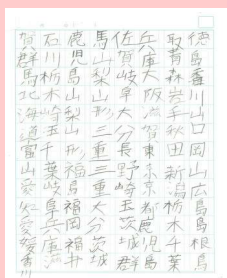 徳島香川山口岡山広島島根鳥
取青森岩手秋田新潟栃木千葉
兵庫大阪滋賀東京京都鹿児島
佐賀岐阜大分長野埼玉茨城群
馬山梨山形三重三重大分茨城
鹿児島山梨山形福島福岡福井
石川栃木埼玉千葉岐阜兵庫滋
賀群馬北海道富山愛知愛媛香川